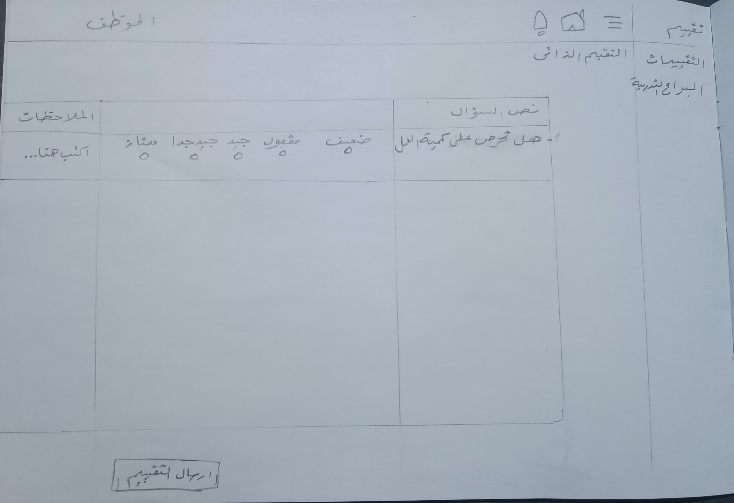 تقييم
الموظف
التقييمات
البرامج التدريبية
التقييم الذاتي
نص السؤال
الملاحظات
1- هل تحرص على كمية العمل
ضعيف مقبول جيد جيد جدا ممتاز
اكتب هنا...
ارسال التقييم